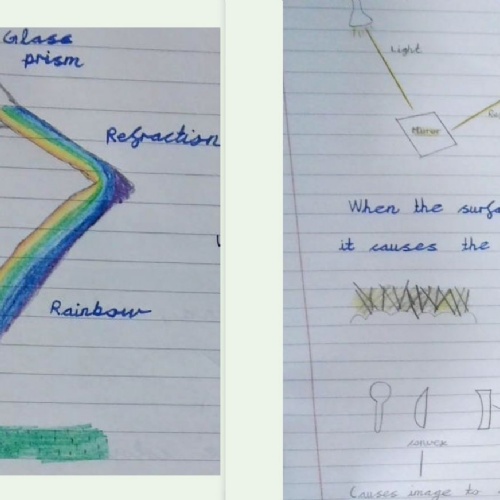 Glass
prism
Refraction
Rainbow
Light
Mirror
When the surfa
it causes the
convex
Causes image to